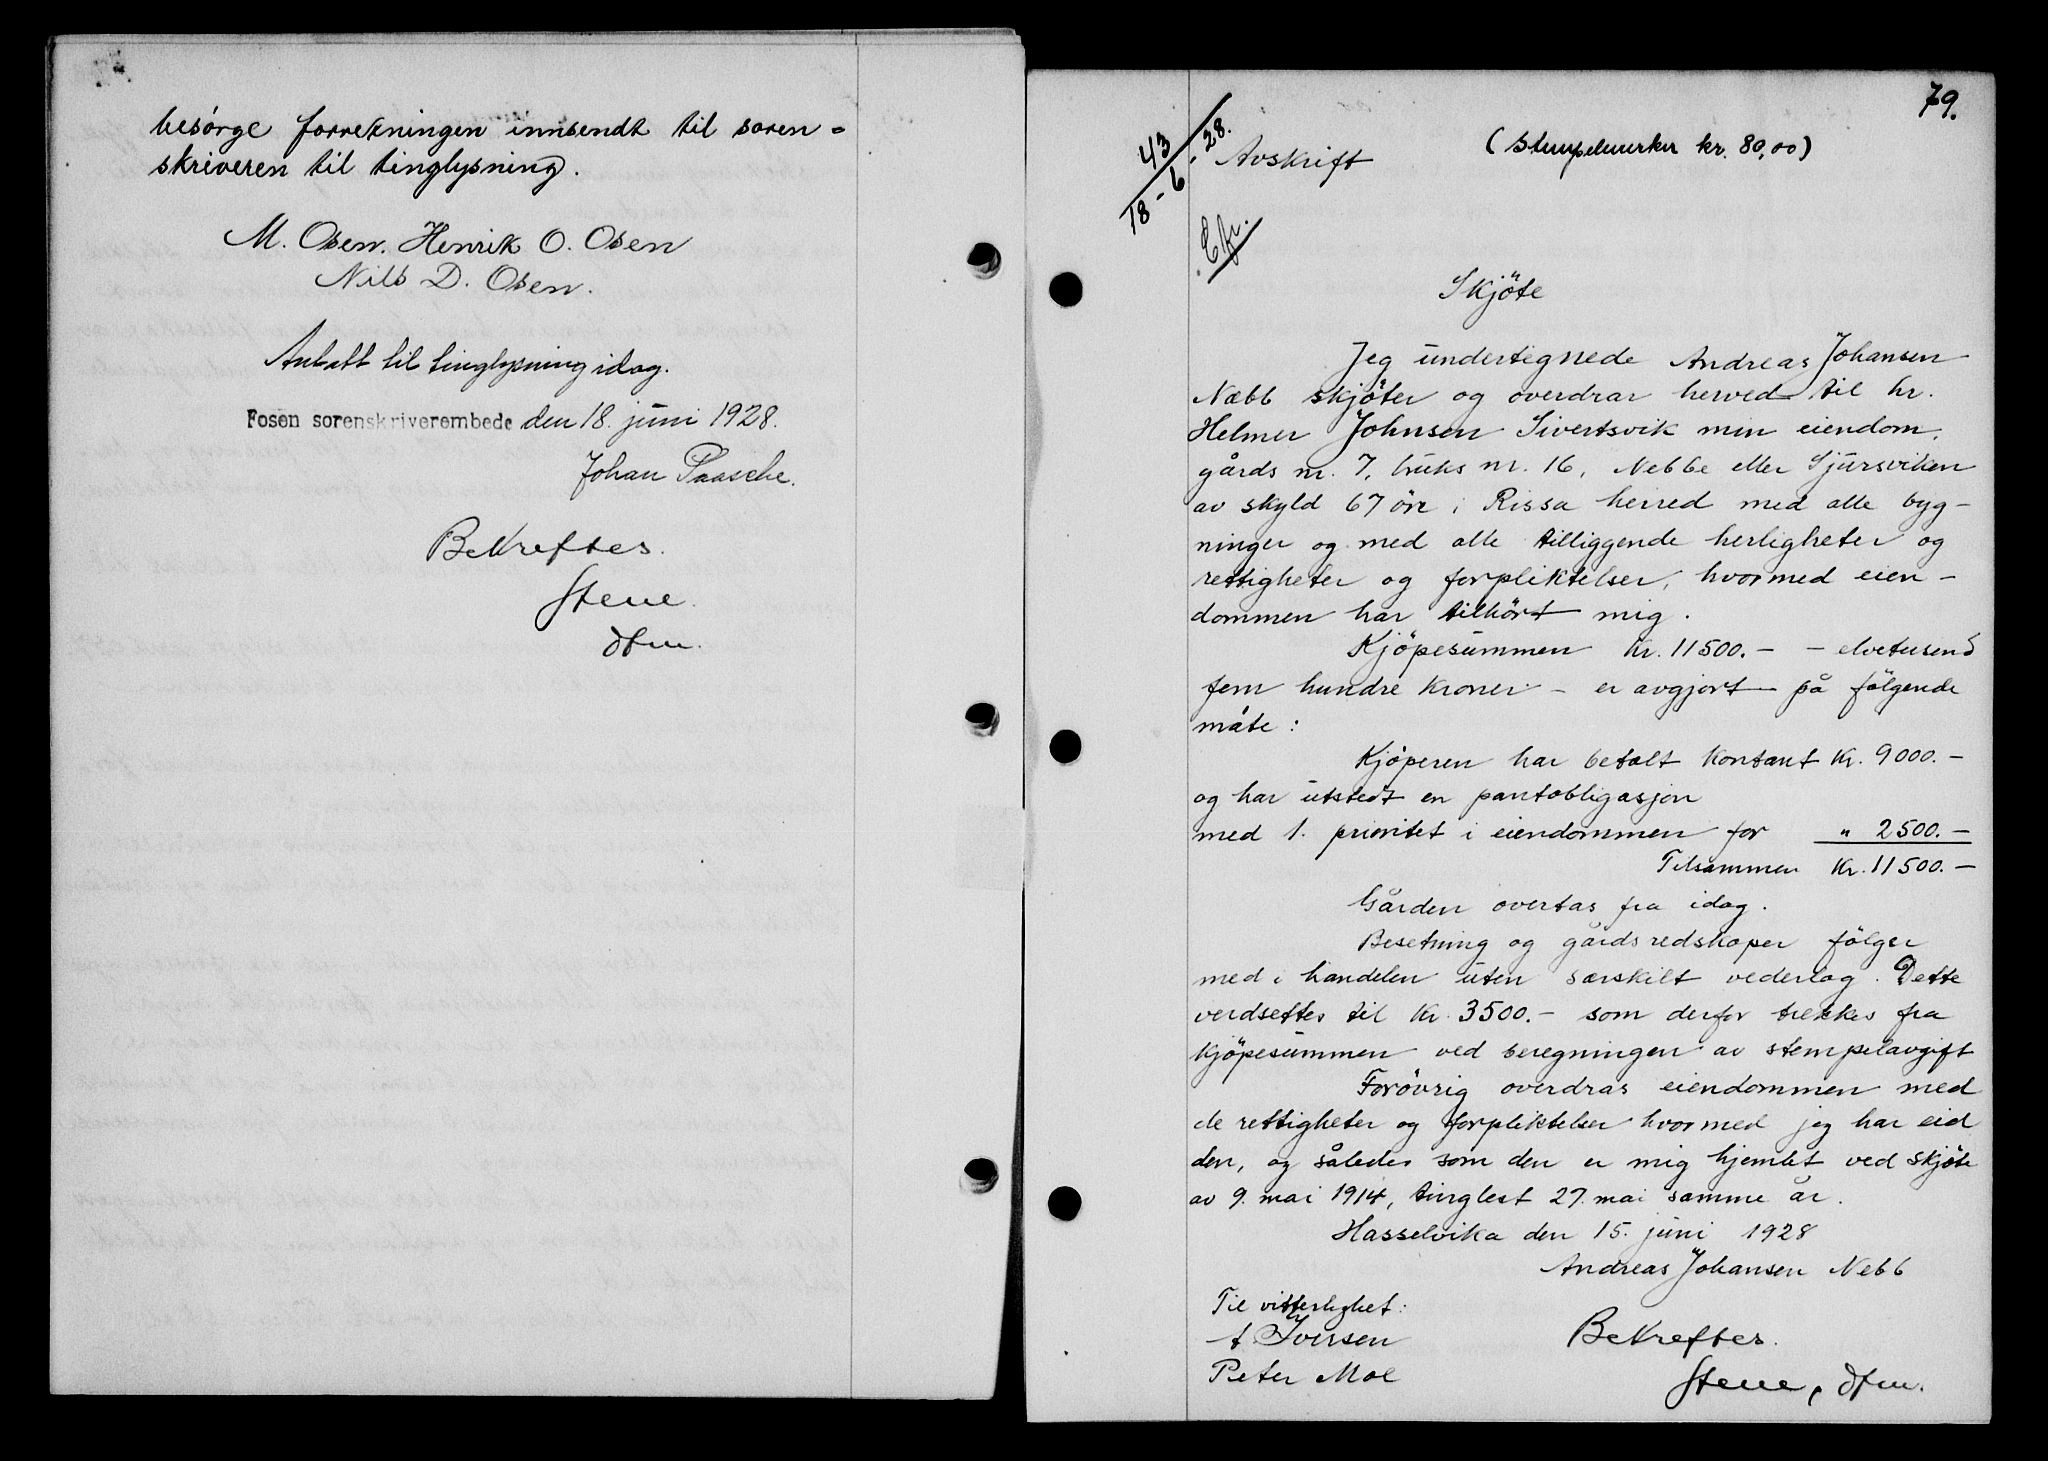 besörge forretningen innsendt til soren=
skriveren til tinglysning.
M. Osen. Henrik O. Osen
Nils D. Osen.
Antatt til tinglysning idag.
Fosen sorenskriverembede den 18. juni 1928.
Johan Paasche.
Bekreftes.
Stene.
dfm.
79.
43
18-6-28.
Avskrift (Stempelmerker kr. 80,00)
Skjöte
Jeg undertegnede Andreas Johansen
Næbb skjöter og overdrar herved til hr.
Helmer Johnsen Sivertsvik min eiendom,
gårds nr. 7, bruks nr. 16, Nebbe eller Sjursviken
av skyld 67 öre i Rissa herred med alle byg-
ninger og med alle tilliggende herligheter og
rettigheter og forpliktelser, hvormed eien-
dommen har tilhört mig.
Kjöpesummen Kr. 11500.- - elvetusend
fem hundre kroner - er avgjort på fölgende
måte:
Kjöperen har betalt kontant Kr. 9000.-
og har utstedt en pantobligasjon
med 1. prioritet i eiendommen for " 2500.-
Tilsammen Kr. 11500.-
Gården overtas fra idag.
Besetning og gårdsredskaper fölger
med i handelen uten særskilt vederlag. Dette
verdsettes til Kr. 3500.- som derfor trekkes fra
kjöpesummen ved beregningen av stempelavgift
Forövrig overdras eiendommen med
de rettigheter og forpliktelser hvormed jeg har eid
den, og således som den er mig hjemlet ved skjöte
av 9. mai 1914, tinglest 27. mai samme år.
Hasselvika den 15. juni 1928
Andreas Johansen Nebb
Til vitterlighet:
A Iversen Bekreftes.
Peter Moe Stene, dfm.